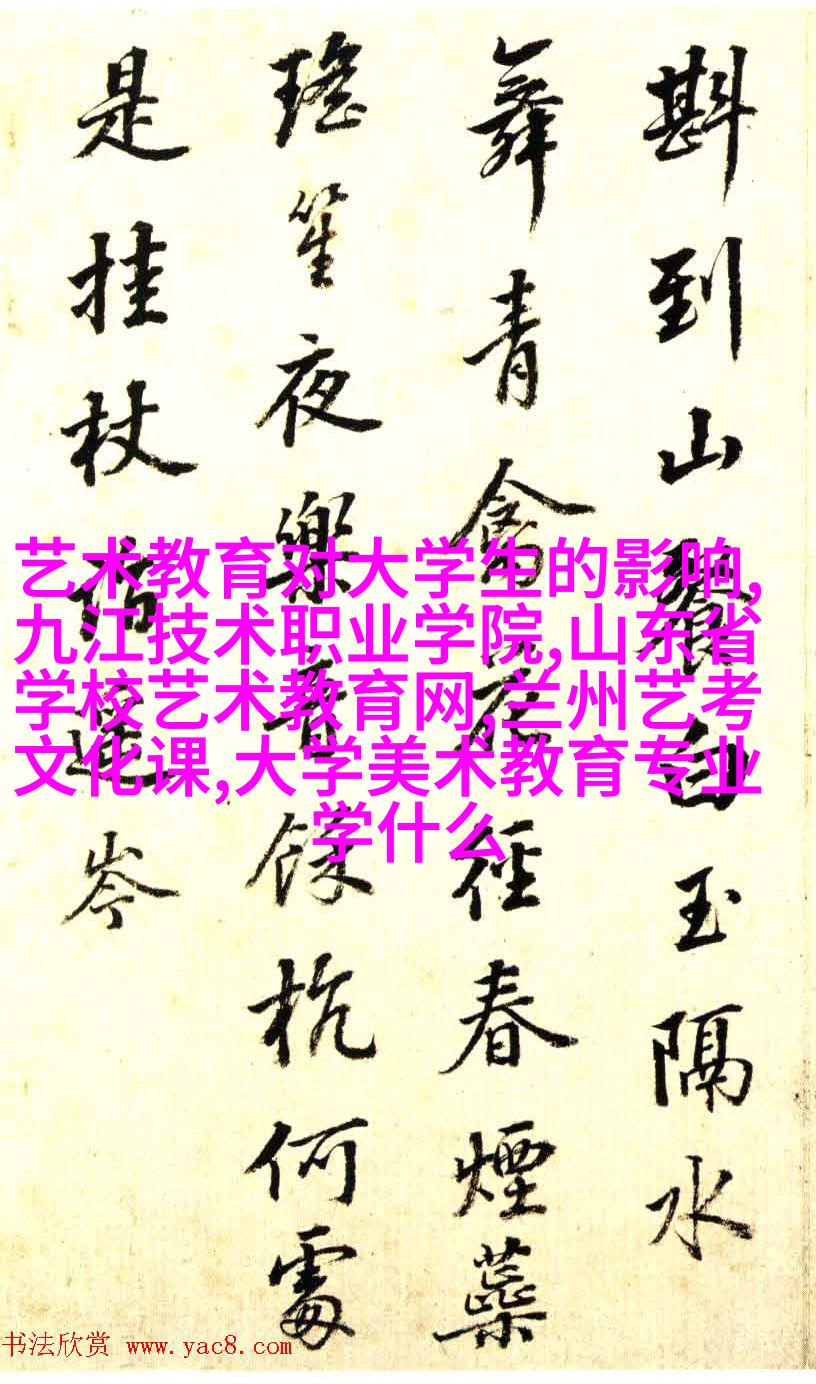 斟到山白玉隔水
舞青禽徑春煙蘂
瑤笙夜樂餘杭何處
是挂杖訪遥岑
艺术教育对大学生的影响,
九江技术职业学院,山东省
学校艺术教育网,兰州艺考
文化课,大学美术教育专业
学什么
书法欣赏 www.yac8.com